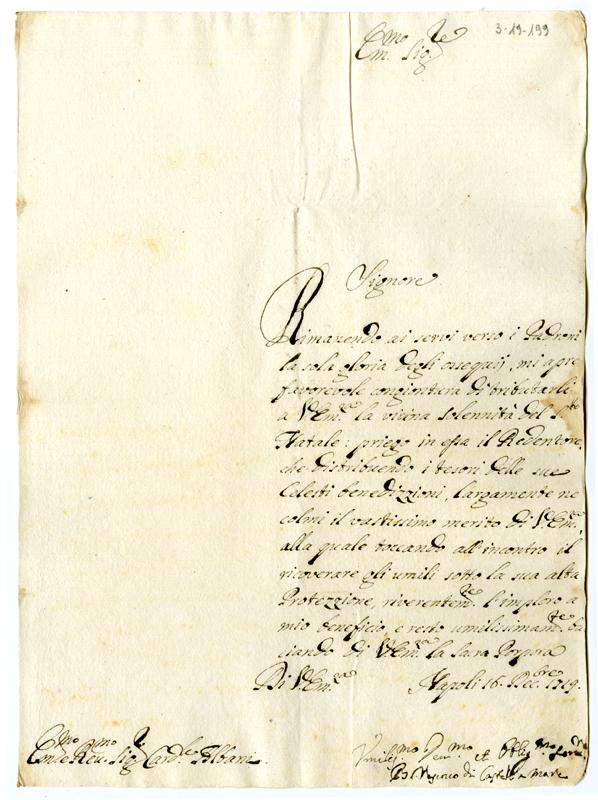 3-19-199
Em.mo Sig.re
Signore
Rimanendo ai servi verso i Padroni
la sola gloria degli ossequij, mi apre
favorevole congiontura di tributarli
a V.Em.za la vicina solennità del S.to
Natale: priego in essa il Redentore,
che distribuendo i tesori delle sue
Celesti benedizzioni, largamente ne
colmi il vastissimo merito di V.Em.za,
alla quale toccando all'incontro il
ricoverare gli umili sotto la sua alta
Protezzione, riverentem.te l'imploro a
mio beneficio, e resto umilissimam.te ba
ciando di V.Em.za la Sacra Porpora
Di V.Em.za Napoli 16. Dec.bre 1719.
Umiliss.mo Dev.mo et Obblig.mo
Em.mo e Rev.mo Sig.r Card.le Albani
Vescovo di Castell'a Mare